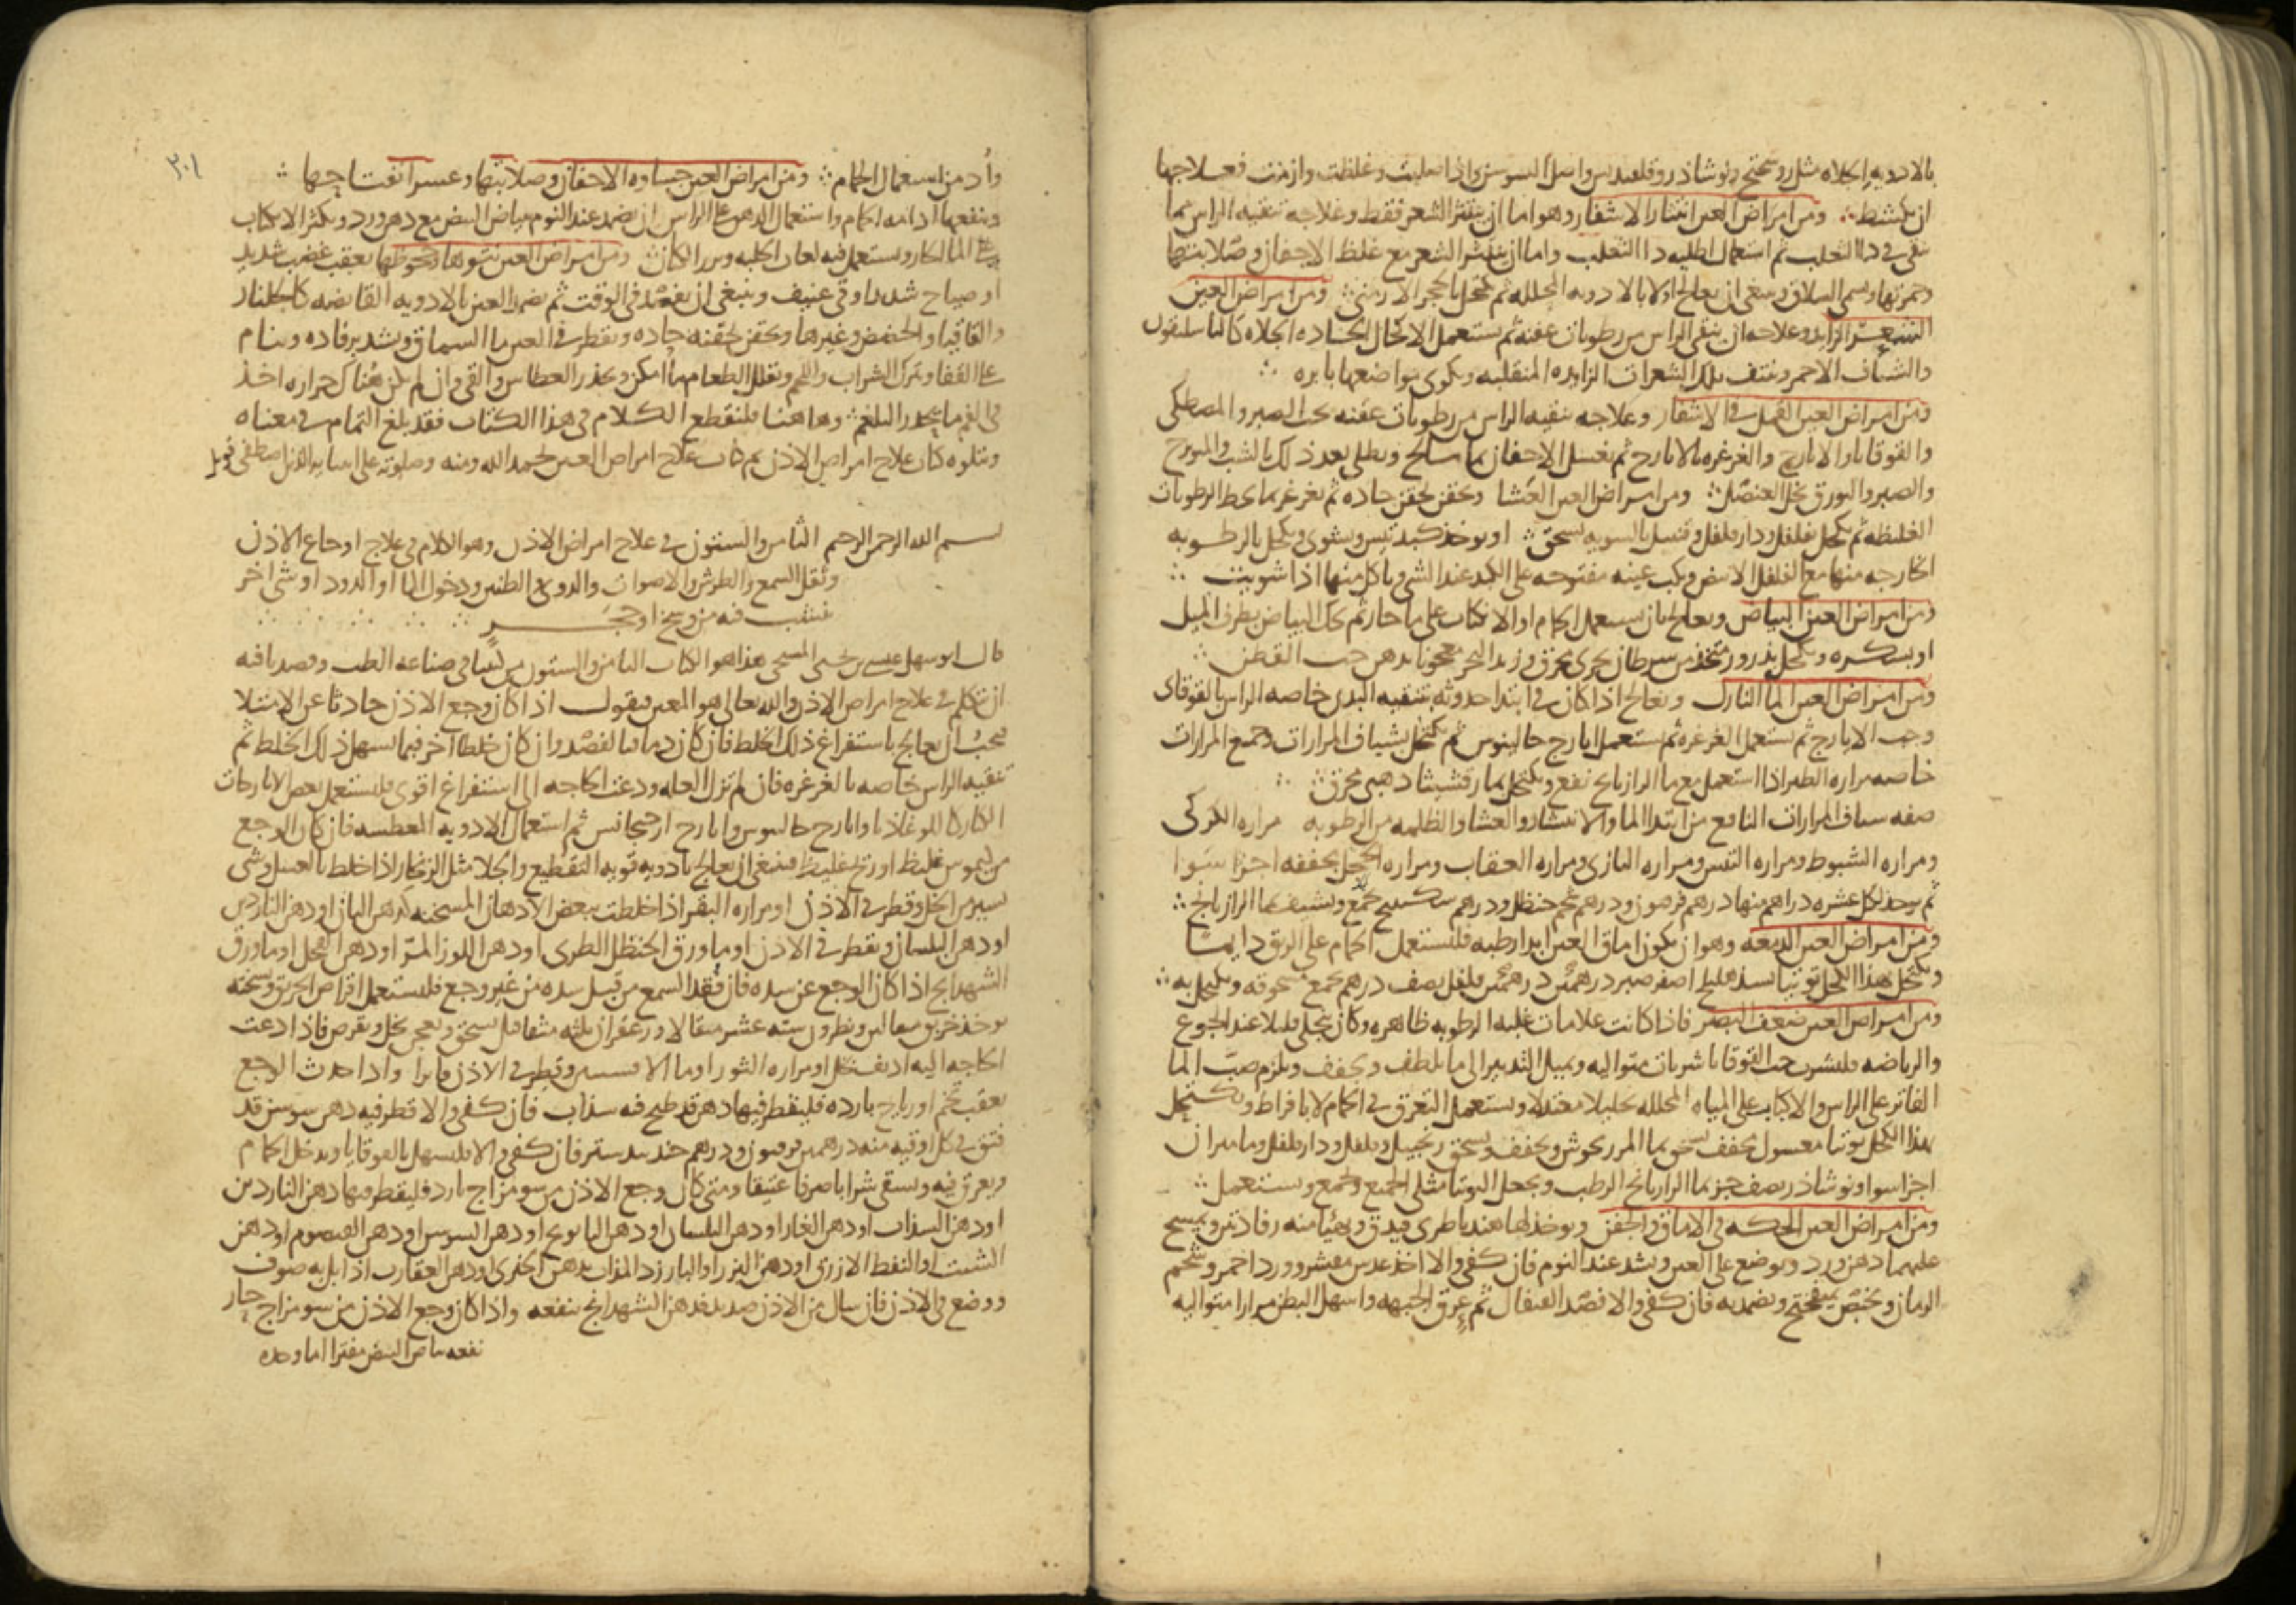 بالادويه الجلاه مثل روسختج ونوشاذر وقلقديس واصل السوسن واذا صلبت وغلظت وازمنت فعلاجها
ان تكشط ومن امراض العين انتثار الاشفار وهو اما ان ينتثر الشعر فقط وعلاجه تنقيه الراس بما
نقى فى دا الثعلب ثم استعمال اطليه دا الثعلب واما ان ينتثر الشعر مع غلظ الاجفان وصلابتها
وحمرتها ويسمى السلاق وينبغى ان يعالج اولا بالادويه المحلله ثم يكتحل بالحجر الارمنى ومن امراض العين
الشعر الزايد وعلاجه ان ينقى الراس من رطوبات عفنه ثم يستعمل الاكحال الحاده الجلاه كالباسليقون
والشياف الاحمر وينتف تلك الشعرات الزايده المنقلبه ويكوى مواضعها بابره
ومن امراض العين القمل فى الاشفار وعلاجه تنقيه الراس من رطوبات عفنه بحب الصبر والمصطكى
والقوقايا والايارج والغرغره بالايارج ثم تغسل الاجفان بما مالح ويطلى بعد ذلك بالشب والميويزج
والصبر والبورق بخل العنصل ومن امراض العين العشا وبحقن بحقن حاده ثم يغرغر بما يحط الرطوبات
الغليظه ثم يكحل بفلفل ودار فلفل وقنبيل بالسويه يسحق او يوخذ كبد تيس ويشوى ويكحل بالرطوبه
الخارجه منها مع الفلفل الابيض ويكب عينه مفتوحه على الكبد عند الشى وياكل منها اذا شويت
ومن امراض العين البياض ويعالج بان يستعمل الحمام او الانكباب على ما حار ثم يحك البياض بطرف الميل
او بسكره ويكحل بذرور متخذ من سرطان بحرى محرق وزبد البحر معجونا بدهن حب القطن
ومن امراض العين الما النازل ويعالج اذا كان فى ابتدا حدوثه بتنقيه البدن خاصه الراس بالقوقاى
وحب الايارج ثم يستعمل الغرغره ثم يستعمل ايارج جالينوس ثم يكتحل بشياف المرارات وجميع المرارات
خاصه مراره الطير اذا استعمل مع ما الرازيانج نفع ويكتحل بمارقشيثا ذهبى محرق
صفه شياف المرارات النافع من ابتدا الما والانتشار والعشا والظلمه من الرطوبه مراره الكركى
ومراره الشبوط ومراره التيس ومراره البازى ومراره العقاب ومراره الحجل يجففه اجزا سوا
ثم يوخذ لكل عشره دراهم منها درهم فربيون ودرهم شحم حنظل ودرهم سكبينج يجمع ويشيف بما الرازيانج
ومن امراض العين الدمعه وهو ان يكون اماق العين ابدا رطبه فليستعمل الحمام على الريق دايما
ويكتحل بهذا الكحل توتيا بسد هليلج اصفر صبر درهمين درهمين فلفل نصف درهم يجمع مسحوقه ويكتحل به
ومن امراض العين ضعف البصر فاذا كانت علامات غلبه الرطوبه ظاهره وكان ينجلى قليلا عند الجوع
والرياضه فليشرب حب القوقايا شربات متواليه ويميل التدبير الى ما يلطف ويجفف ويلزم صب الما
الفاتر على الراس والانكباب على المياه المحلله تحليلا معتدلا ويستعمل التعرق فى الحمام لا بافراط ويكتحل
بهذا الكحل توتيا مغسول مجفف يسحق بما المرزنجوش ويجفف ويسحق زنجبيل وفلفل ودار فلفل وماميران
اجزا سوا ونوشاذر نصف جز بما الرازيانج الرطب ويجعل التوتيا مثلى الجميع ويجمع ويستعمل
ومن امراض العين الحكه فى الاماق والجفن ويوخذ لها هندبا طرى فيدق ويهيا منه رفادتين ويمسح
عليهما دهن ورد ويوضع على العين ويشد عند النوم فان كفى والا اخذ عدس مقشر وورد احمر وشحم
الرمان ويخبص بميفختج ويضمد به فان كفى والا فصد القيفال ثم عرق الجبهه واسهل البطن مرارا متواليه
٣٠١
وادمن استعمال الحمام ومن امراض العين جساوه الاجفان وصلابتها وعسر انفتاحها
وينفعها ادامه الحمام واستعمال الدهن على الراس وان يضمد عند النوم ببياض البيض مع دهن ورد ويكثر الانكباب
على الما الحار ويستعمل فيه لعاب الحلبه وبزر الكتان ومن امراض العين نتوها وجحوظها بعقب غضب شديد
او صياح شديد او قى عنيف وينبغى ان يفصد فى الوقت ثم يضمد العين بالادويه القابضه كالجلنار
والقاقيا والحضض وغيرها ويحقن بحقنه حاده ويقطر فى العين ما السماق ويشد برفاده وينام
على القفا ويترك الشراب واللحم ويقلل الطعام ما امكن ويحذر العطاس والقى وان لم يكن هناك حراره اخذ
فى الفم ما يحدر البلغم وهاهنا فلنقطع الكلام فى هذا الكتاب فقد بلغ التمام فى معناه
ويتلوه كتاب علاج امراض الاذن تم كتاب علاج امراض العين بحمد الله ومنه وصلوته على انبيايه الذين اصطفى
بسم الله الرحمن الرحيم الثامن والستون فى علاج امراض الاذن وهو الكلام فى علاج اوجاع الاذن
وثقل السمع والطرش والاصوات والدوى والطنين ودخول الما او الدود او شى اخر
ينشب فيه من وسخ او حجر
قال ابو سهل عيسى بن يحيى المسيحى هذا هو الكتاب الثامن والستون من كتبنا فى صناعه الطب وقصدنا فيه
ان نتكلم فى علاج امراض الاذن والله تعالى هو المعين فنقول اذا كان وجع الاذن حادثا عن الامتلا
فيجب ان يعالج باستفراغ ذلك الخلط فان كان دما فبالفصد وان كان خلطا اخر فبما يسهل ذلك الخلط ثم
تنقيه الراس خاصه بالغرغره فان لم تزل العله ودعت الحاجه الى استفراغ اقوى فليستعمل بعض الايارجات
الكبار كاللوغاذيا وايارج جالينوس وايارج اركيجانس ثم استعمال الادويه المعطسه فان كان الوجع
من كيموس غليظ او ريح غليظ فينبغى ان يعالج بادويه قويه التقطيع والجلا مثل الزنجار اذا خلط بالعسل وشى
يسير من الخل وقطر فى الاذن او مراره البقر اذا خلطت ببعض الادهان المسخنه كدهن البان او دهن الناردين
او دهن البلسان ويقطر فى الاذن او ما ورق الحنظل الطرى او دهن اللوز المر او دهن الفجل او ما ورق
الشهدانج اذا كان الوجع عن سده فان فقد السمع من قبل سده من غير وجع فليستعمل اقراص الخربق ونسخته
يوخذ خربق مثقالين ونطرون سته عشر مثقالا وزعفران ثلثه مثاقيل يسحق ويعجن بخل ويقرص فاذا دعت
الحاجه اليه اديف بخل او مراره الثور او ما الافسنتين وقطر فى الاذن فاترا واذا حدث الوجع
بعقب تخم او رياح بارده فليقطر فيها دهن قد طبخ فيه سذاب فان كفى والا قطر فيه دهن سوسن قد
فتق فى كل اوقيه منه درهمين فربيون ودرهم جندبيدستر فان كفى والا فليسهل بالقوقايا ويدخل الحمام
ويعرق فيه ويسقى شرابا صرفا عتيقا ومتى كان وجع الاذن من سو مزاج بارد فليقطر فيها دهن الناردين
او دهن السذاب او دهن الغار او دهن البلسان او دهن البابونج او دهن السوسن او دهن القيصوم او دهن
الشبت والنفط الازرق او دهن البزر او البارزد المذاب بدهن الخيرى او دهن العقارب اذا بل به صوف
ووضع فى الاذن فان سال من الاذن صديد فدهن الشهدانج ينفعه واذا كان وجع الاذن من سو مزاج حار
نفعه بياض البيض مفترا اما وحده